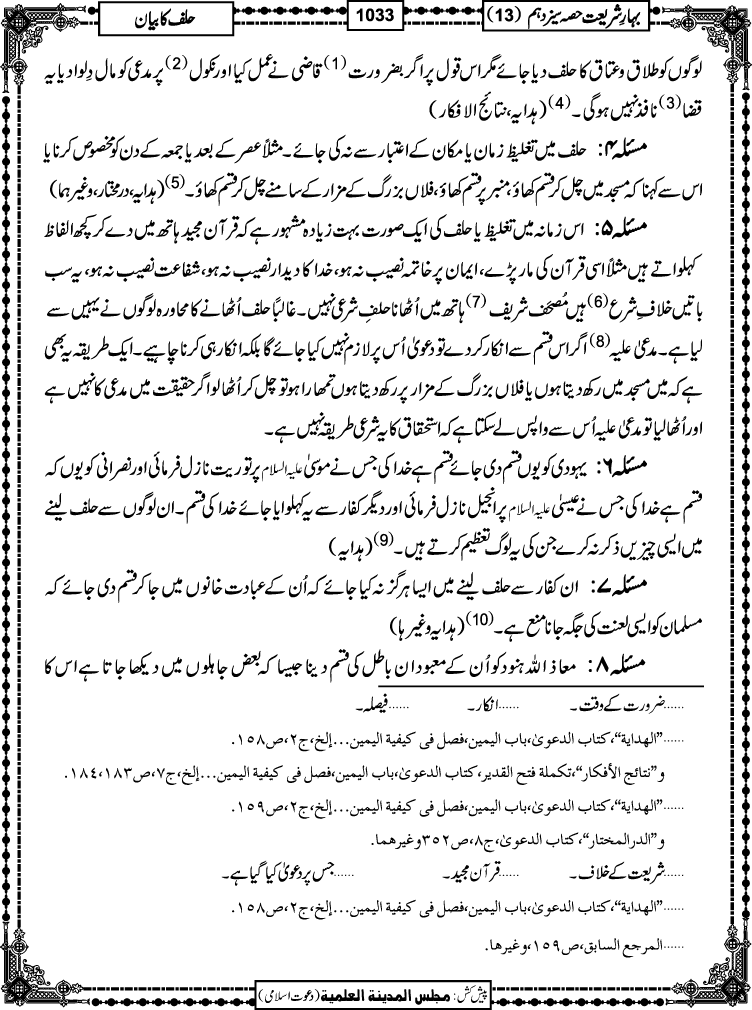 بہارِ شریعت حصہ سیزدہم (13)
1033
حلف کا بیان
لوگوں کو طلاق وعتاق کا حلف دیا جائے مگر اس قول پر اگر بضرورت(1) قاضی نے عمل کیا اور نکول(2) پر مدعی کو مال دِلوا دیا یہ
قضا(3) نافذ نہیں ہوگی۔(4) (ہدایہ، نتائج الافکار)
مسئلہ ۴: حلف میں تغلیظ زمان یا مکان کے اعتبار سے نہ کی جائے۔ مثلاً عصر کے بعد یا جمعہ کے دن کو مخصوص کرنا یا
اس سے کہنا کہ مسجد میں چل کر قسم کھاؤ، منبر پر قسم کھاؤ، فلاں بزرگ کے مزار کے سامنے چل کر قسم کھاؤ۔(5) (ہدایہ، درمختار، وغیرہما)
مسئلہ ۵: اس زمانہ میں تغلیظ یا حلف کی ایک صورت بہت زیادہ مشہور ہے کہ قرآن مجید ہاتھ میں دے کر کچھ الفاظ
کہلواتے ہیں مثلاً اسی قرآن کی مار پڑے، ایمان پر خاتمہ نصیب نہ ہو، خدا کا دیدار نصیب نہ ہو، شفاعت نصیب نہ ہو، یہ سب
باتیں خلافِ شرع(6) ہیں مُصحَف شریف(7) ہاتھ میں اُٹھانا حلفِ شرعی نہیں۔ غالبًا حلف اُٹھانے کا محاورہ لوگوں نے یہیں سے
لیا ہے۔ مدعیٰ علیہ(8) اگر اس قسم سے انکار کردے تو دعویٰ اُس پر لازم نہیں کیا جائے گا بلکہ انکار ہی کرنا چاہیے۔ ایک طریقہ یہ بھی
ہے کہ میں مسجد میں رکھ دیتا ہوں یا فلاں بزرگ کے مزار پر رکھ دیتا ہوں تمھارا ہو تو چل کر اُٹھا لو اگر حقیقت میں مدعی کا نہیں ہے
اور اُٹھا لیا تو مدعیٰ علیہ اُس سے واپس لے سکتا ہے کہ استحقاق کا یہ شرعی طریقہ نہیں ہے۔
مسئلہ ۶: یہودی کو یوں قسم دی جائے قسم ہے خدا کی جس نے موسیٰ علیہ السلام پر توریت نازل فرمائی اور نصرانی کو یوں کہ
قسم ہے خدا کی جس نے عیسیٰ علیہ السلام پر انجیل نازل فرمائی اور دیگر کفار سے یہ کہلوایا جائے خدا کی قسم۔ ان لوگوں سے حلف لینے
میں ایسی چیزیں ذکر نہ کرے جن کی یہ لوگ تعظیم کرتے ہیں۔(9) (ہدایہ)
مسئلہ ۷: ان کفار سے حلف لینے میں ایسا ہرگز نہ کیا جائے کہ اُن کے عبادت خانوں میں جا کر قسم دی جائے کہ
مسلمان کو ایسی لعنت کی جگہ جانا منع ہے۔(10) (ہدایہ وغیرہا)
مسئلہ ۸: معاذ اللہ ہنود کو اُن کے معبودانِ باطل کی قسم دینا جیسا کہ بعض جاہلوں میں دیکھا جاتا ہے اس کا
......ضرورت کے وقت۔ ......انکار۔ ......فیصلہ۔
......”الهداية“، كتاب الدعوىٰ، باب اليمين، فصل فى كيفية اليمين...إلخ، ج٢، ص١٥٨.
و ”نتائج الأفكار“، تكملة فتح القدير، كتاب الدعوىٰ، باب اليمين، فصل فى كيفية اليمين...إلخ، ج٧، ص١٨٣، ١٨٤.
......”الهداية“، كتاب الدعوىٰ، باب اليمين، فصل فى كيفية اليمين...إلخ، ج٢، ص١٥٩.
و ”الدرالمختار“، كتاب الدعوىٰ، ج٨، ص٣٥٢ وغيرهما.
......شریعت کے خلاف۔ ......قرآن مجید۔ ......جس پر دعویٰ کیا گیا ہے۔
......”الهداية“، كتاب الدعوىٰ، باب اليمين، فصل فى كيفية اليمين...إلخ، ج٢، ص١٥٨.
......المرجع السابق، ص١٥٩، وغيرها.
پیش کش: مجلس المدینة العلمیة (دعوت اسلامی)